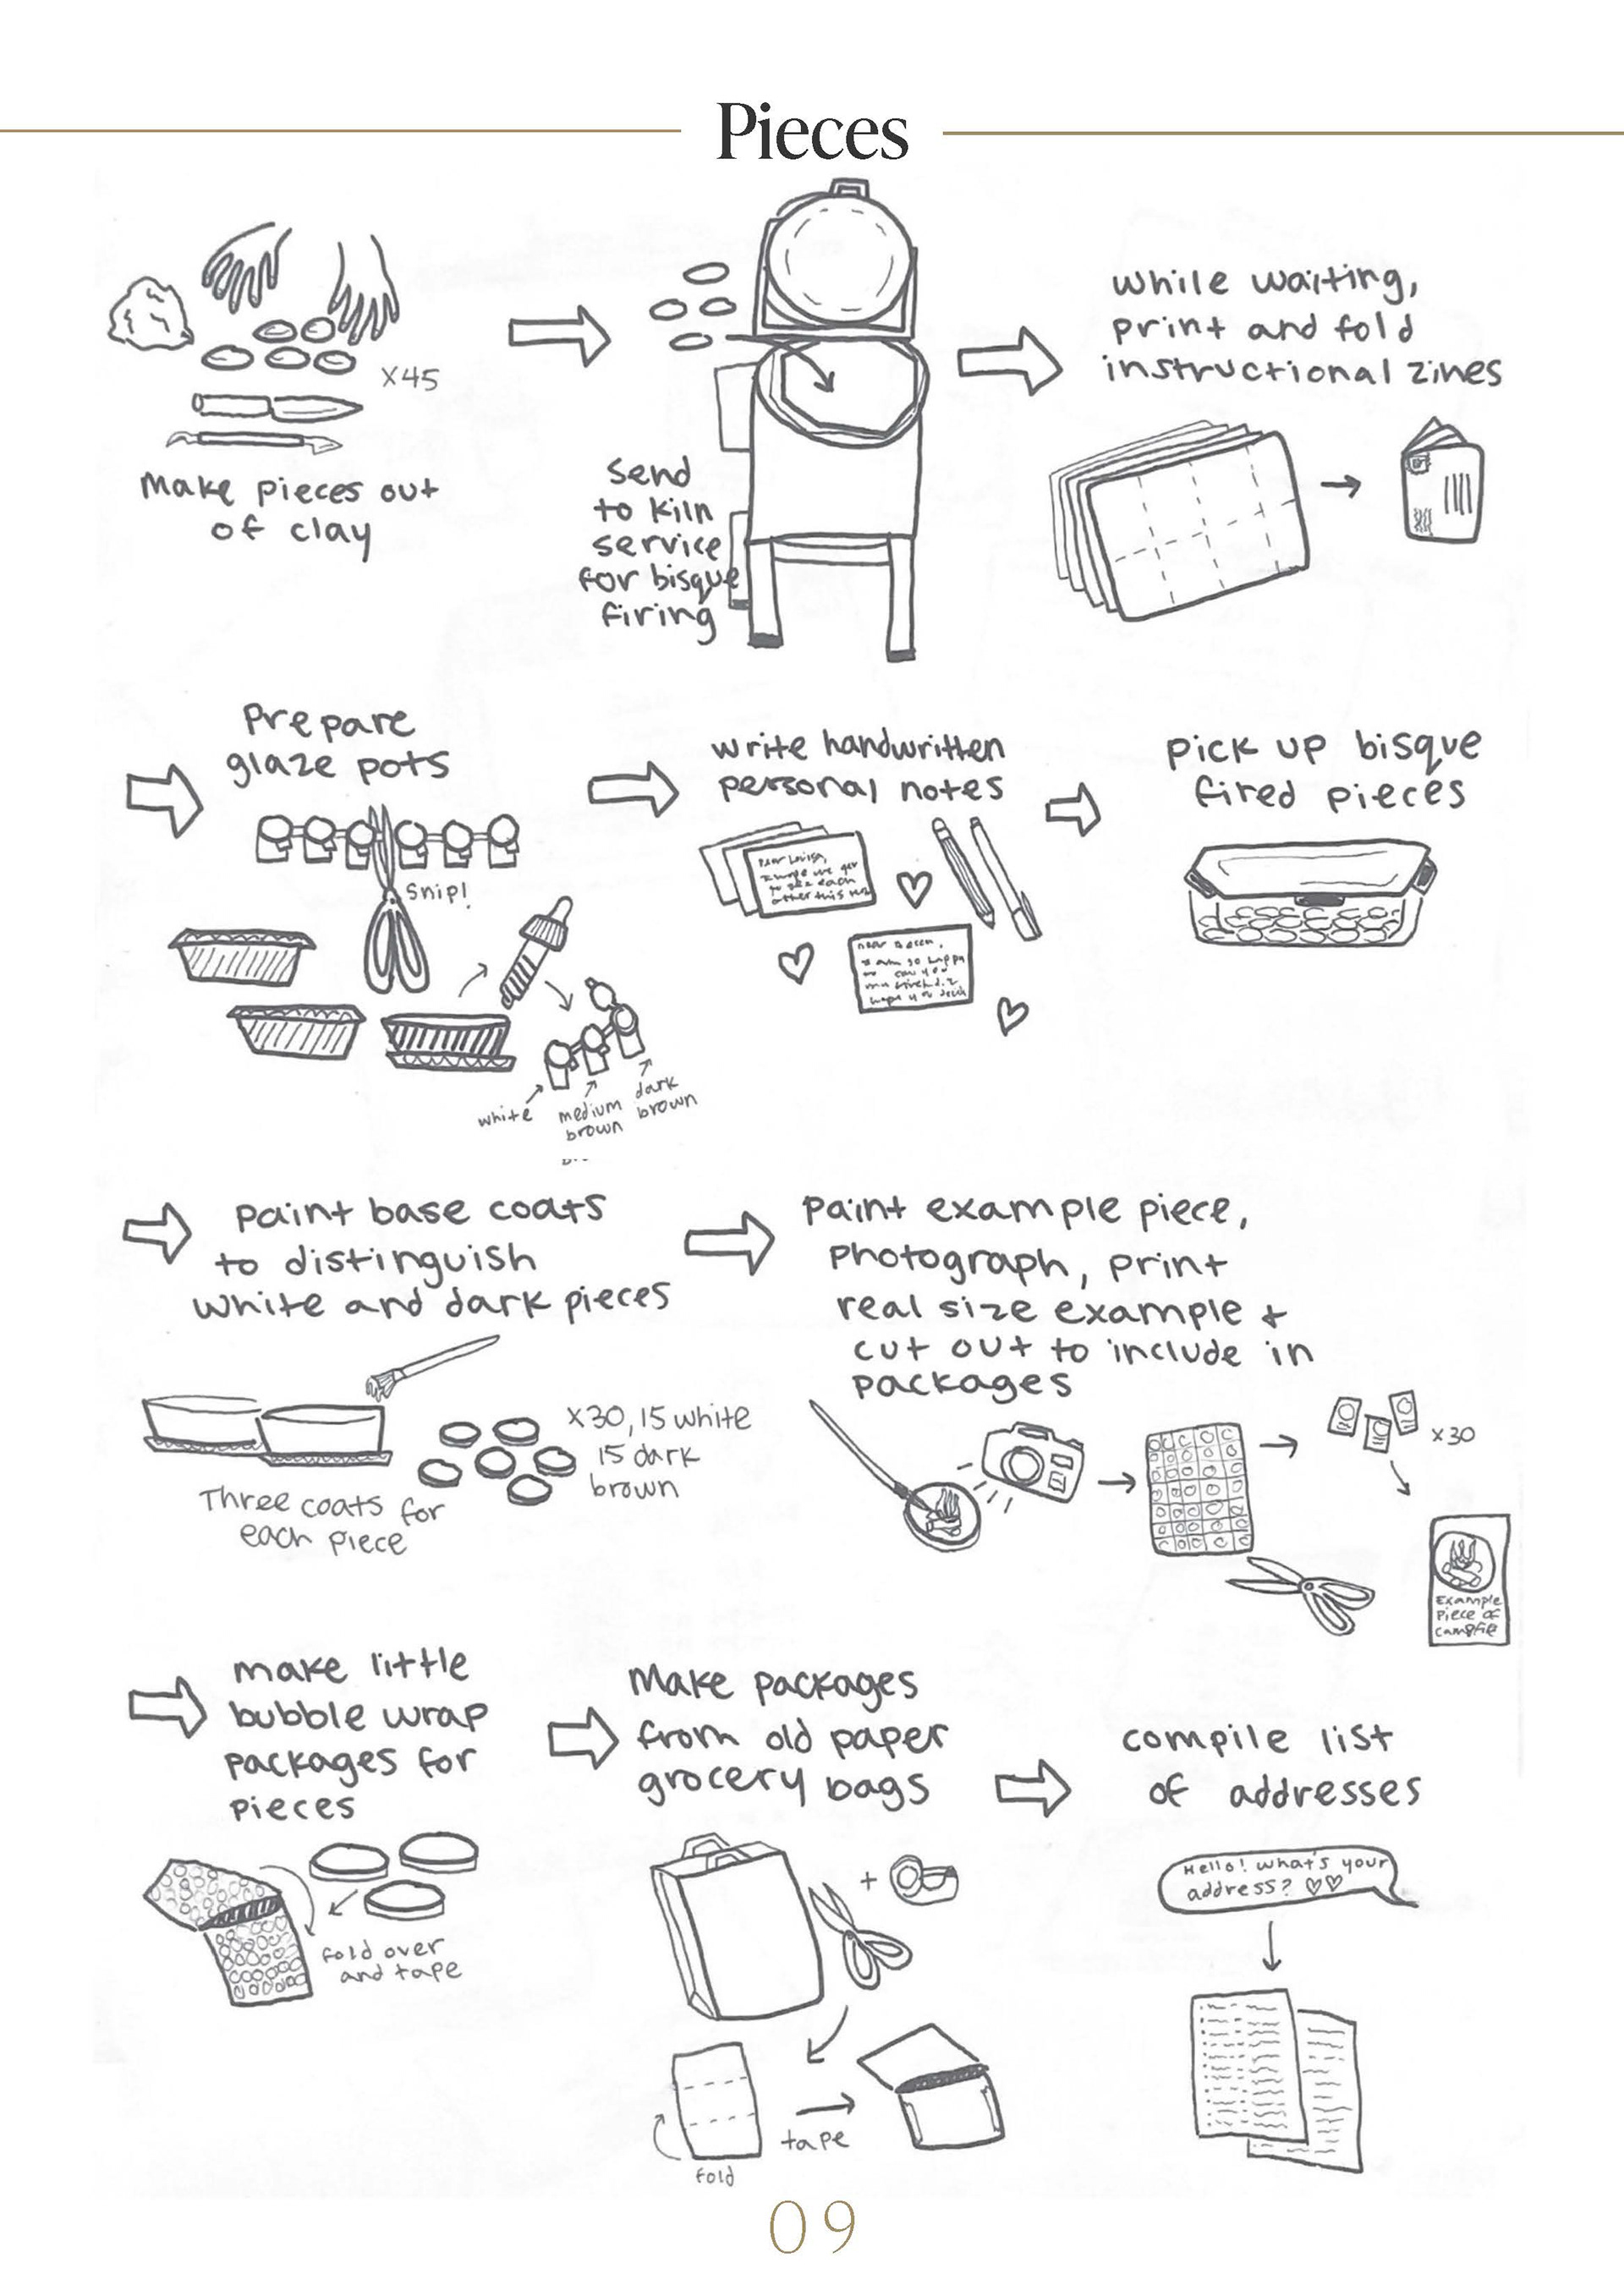 Pieces
x45
Make pieces out
of clay
send
to kiln
service
for bisque
firing
while waiting,
print and fold
instructional zines
Prepare
glaze pots
snip!
white
medium
brown
dark
brown
write handwritten
personal notes
pick up bisque
fired pieces
paint base coats
to distinguish
white and dark pieces
x30, 15 white
15 dark
brown
Three coats for
each piece
paint example piece,
photograph, print
real size example +
cut out to include in
packages
x30
Example
piece of
campfire
make little
bubble wrap
packages for
pieces
fold over
and tape
Make packages
from old paper
grocery bags
+
fold
tape
compile list
of addresses
Hello! what's your
address? ♡♡
09